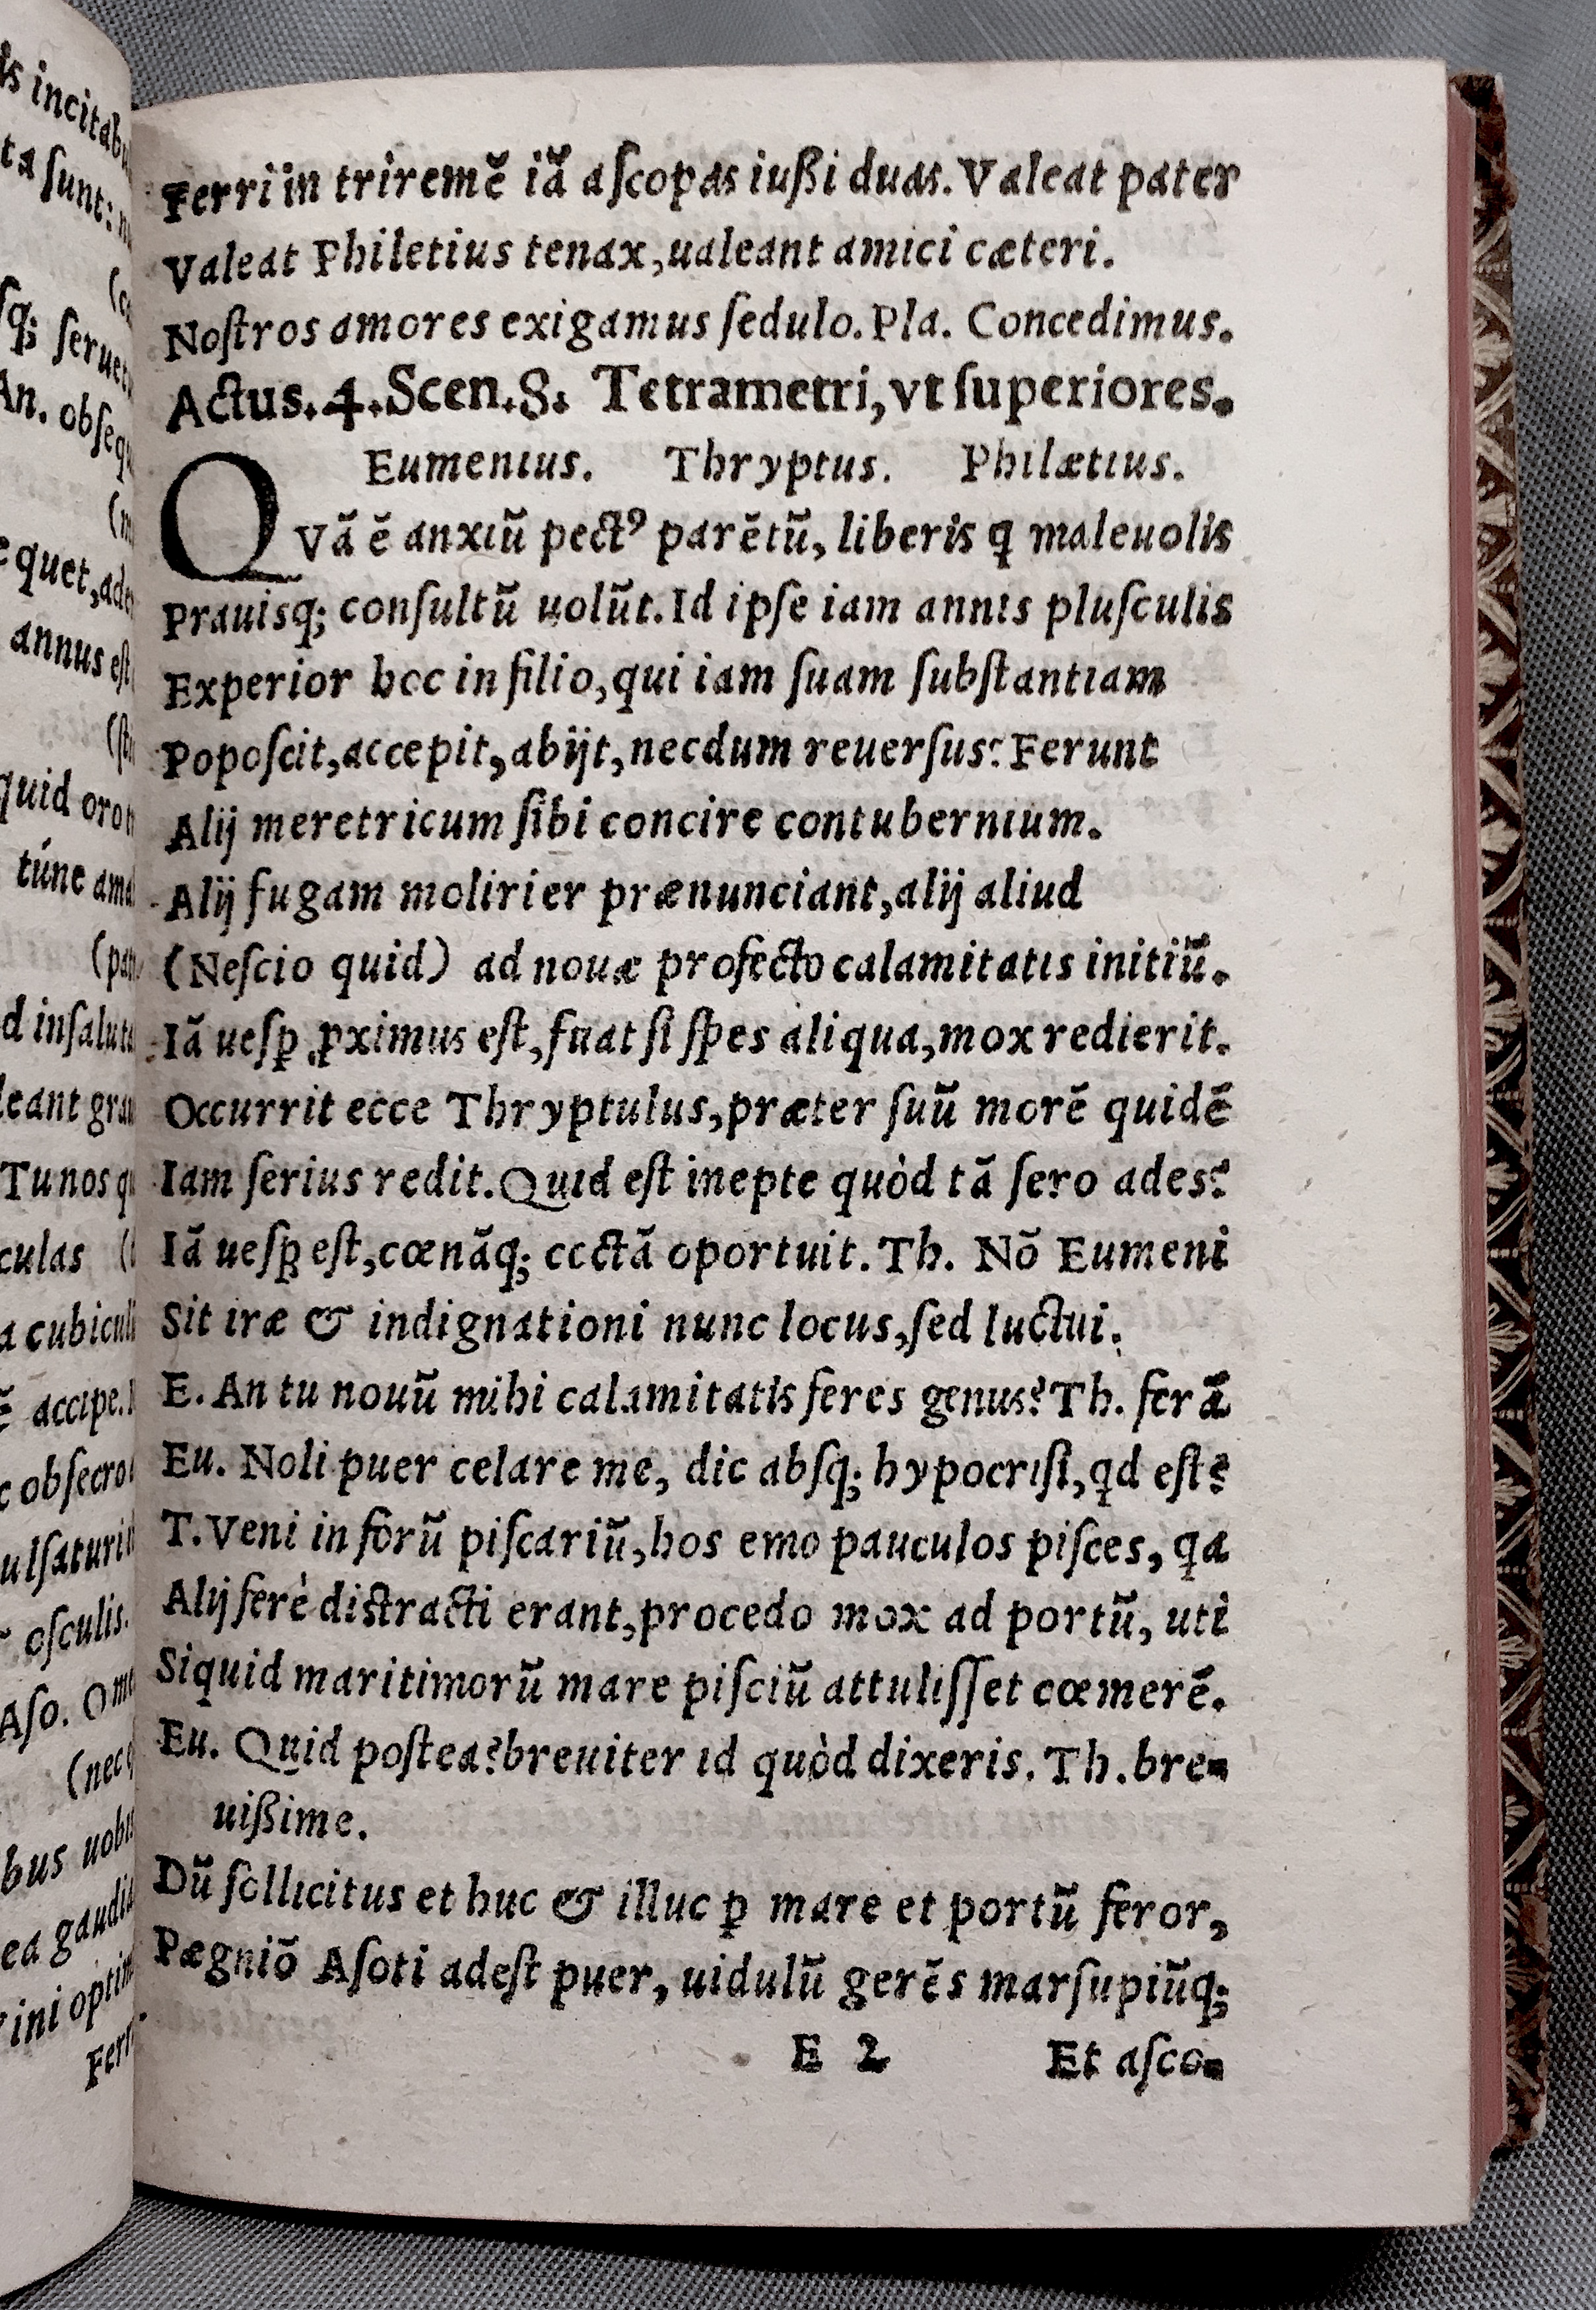 Ferri in triremē iā ascopas iußi duas. Valeat pater
Valeat Philetius tenax, ualeant amici cæteri.
Noſtros amores exigamus ſedulo. Pla. Concedimus.
Actus.4.Scen.8. Tetrametri, vt ſuperiores.
Eumenius. Thryptus. Philætius.
QVā ē anxiū pectꝰ parētū, liberis q maleuolis
Prauisq; conſultū uolūt. Id ipſe iam annis pluſculis
Experior hoc in filio, qui iam ſuam ſubſtantiam
Popoſcit, accepit, abijt, necdum reuerſus? Ferunt
Alij meretricum ſibi concire contubernium.
Alij fugam molirier prænunciant, alij aliud
(Neſcio quid) ad nouæ profecto calamitatis initiū.
Iā ueſꝑ ꝓximus eſt, fuat ſi ſpes aliqua, mox redierit.
Occurrit ecce Thryptulus, præter ſuū morē quidē
Iam ſerius redit. Quid eſt inepte quòd tā ſero ades?
Iā ueſꝑ eſt, cœnāq; coctā oportuit. Th. Nō Eumeni
Sit iræ & indignationi nunc locus, ſed luctui.
E. An tu nouū mihi calamitatis feres genus? Th. ferā
Eu. Noli puer celare me, dic abſq; hypocriſi, qd eſt?
T. Veni in forū piſcariū, hos emo pauculos piſces, qa
Alij ferè diſtracti erant, procedo mox ad portū, uti
Siquid maritimorū mare piſciū attuliſſet cœmerē.
Eu. Quid poſtea? breuiter id quòd dixeris. Th. bre-
uißime.
Dū ſollicitus et huc & illuc ꝑ mare et portū feror,
Pægniō Aſoti adeſt puer, uidulū gerēs marſupiūq;
E 2 Et aſco-